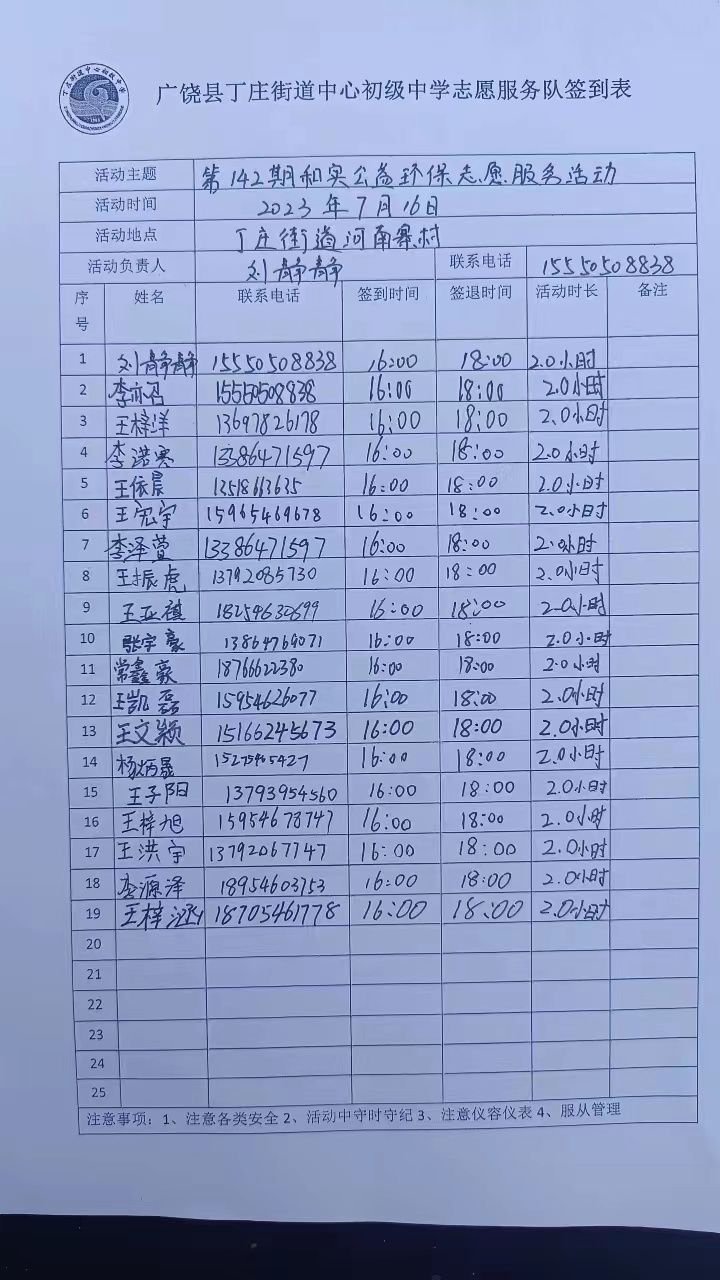 广饶县丁庄街道中心初级中学志愿服务队签到表
活动主题 第142期和实公益环保志愿服务活动
活动时间 2023年7月16日
活动地点 丁庄街道河南寨村
活动负责人 刘静静 联系电话 15550508838
序号 姓名 联系电话 签到时间 签退时间 活动时长 备注
1 刘静静 15550508838 16:00 18:00 2.0小时
2 李亦召 15550508838 16:00 18:00 2.0小时
3 王梓洋 13697826178 16:00 18:00 2.0小时
4 李浩寒 13386471597 16:00 18:00 2.0小时
5 王依晨 13518663635 16:00 18:00 2.0小时
6 王宪宇 15965469678 16:00 18:00 2.0小时
7 李泽萱 13386471597 16:00 18:00 2.0小时
8 王振虎 13792085730 16:00 18:00 2.0小时
9 王亚祺 18254630699 16:00 18:00 2.0小时
10 张宇豪 13864769071 16:00 18:00 2.0小时
11 常鑫豪 18766622380 16:00 18:00 2.0小时
12 王凯磊 15954626077 16:00 18:00 2.0小时
13 王文颖 15166245673 16:00 18:00 2.0小时
14 杨炳晟 15275465427 16:00 18:00 2.0小时
15 王子阳 13793954560 16:00 18:00 2.0小时
16 王梓旭 15954678747 16:00 18:00 2.0小时
17 王洪宇 13792067747 16:00 18:00 2.0小时
18 李源泽 18954603753 16:00 18:00 2.0小时
19 王梓涵 18705461778 16:00 18:00 2.0小时
20
21
22
23
24
25
注意事项：1、注意各类安全 2、活动中守时守纪 3、注意仪容仪表 4、服从管理